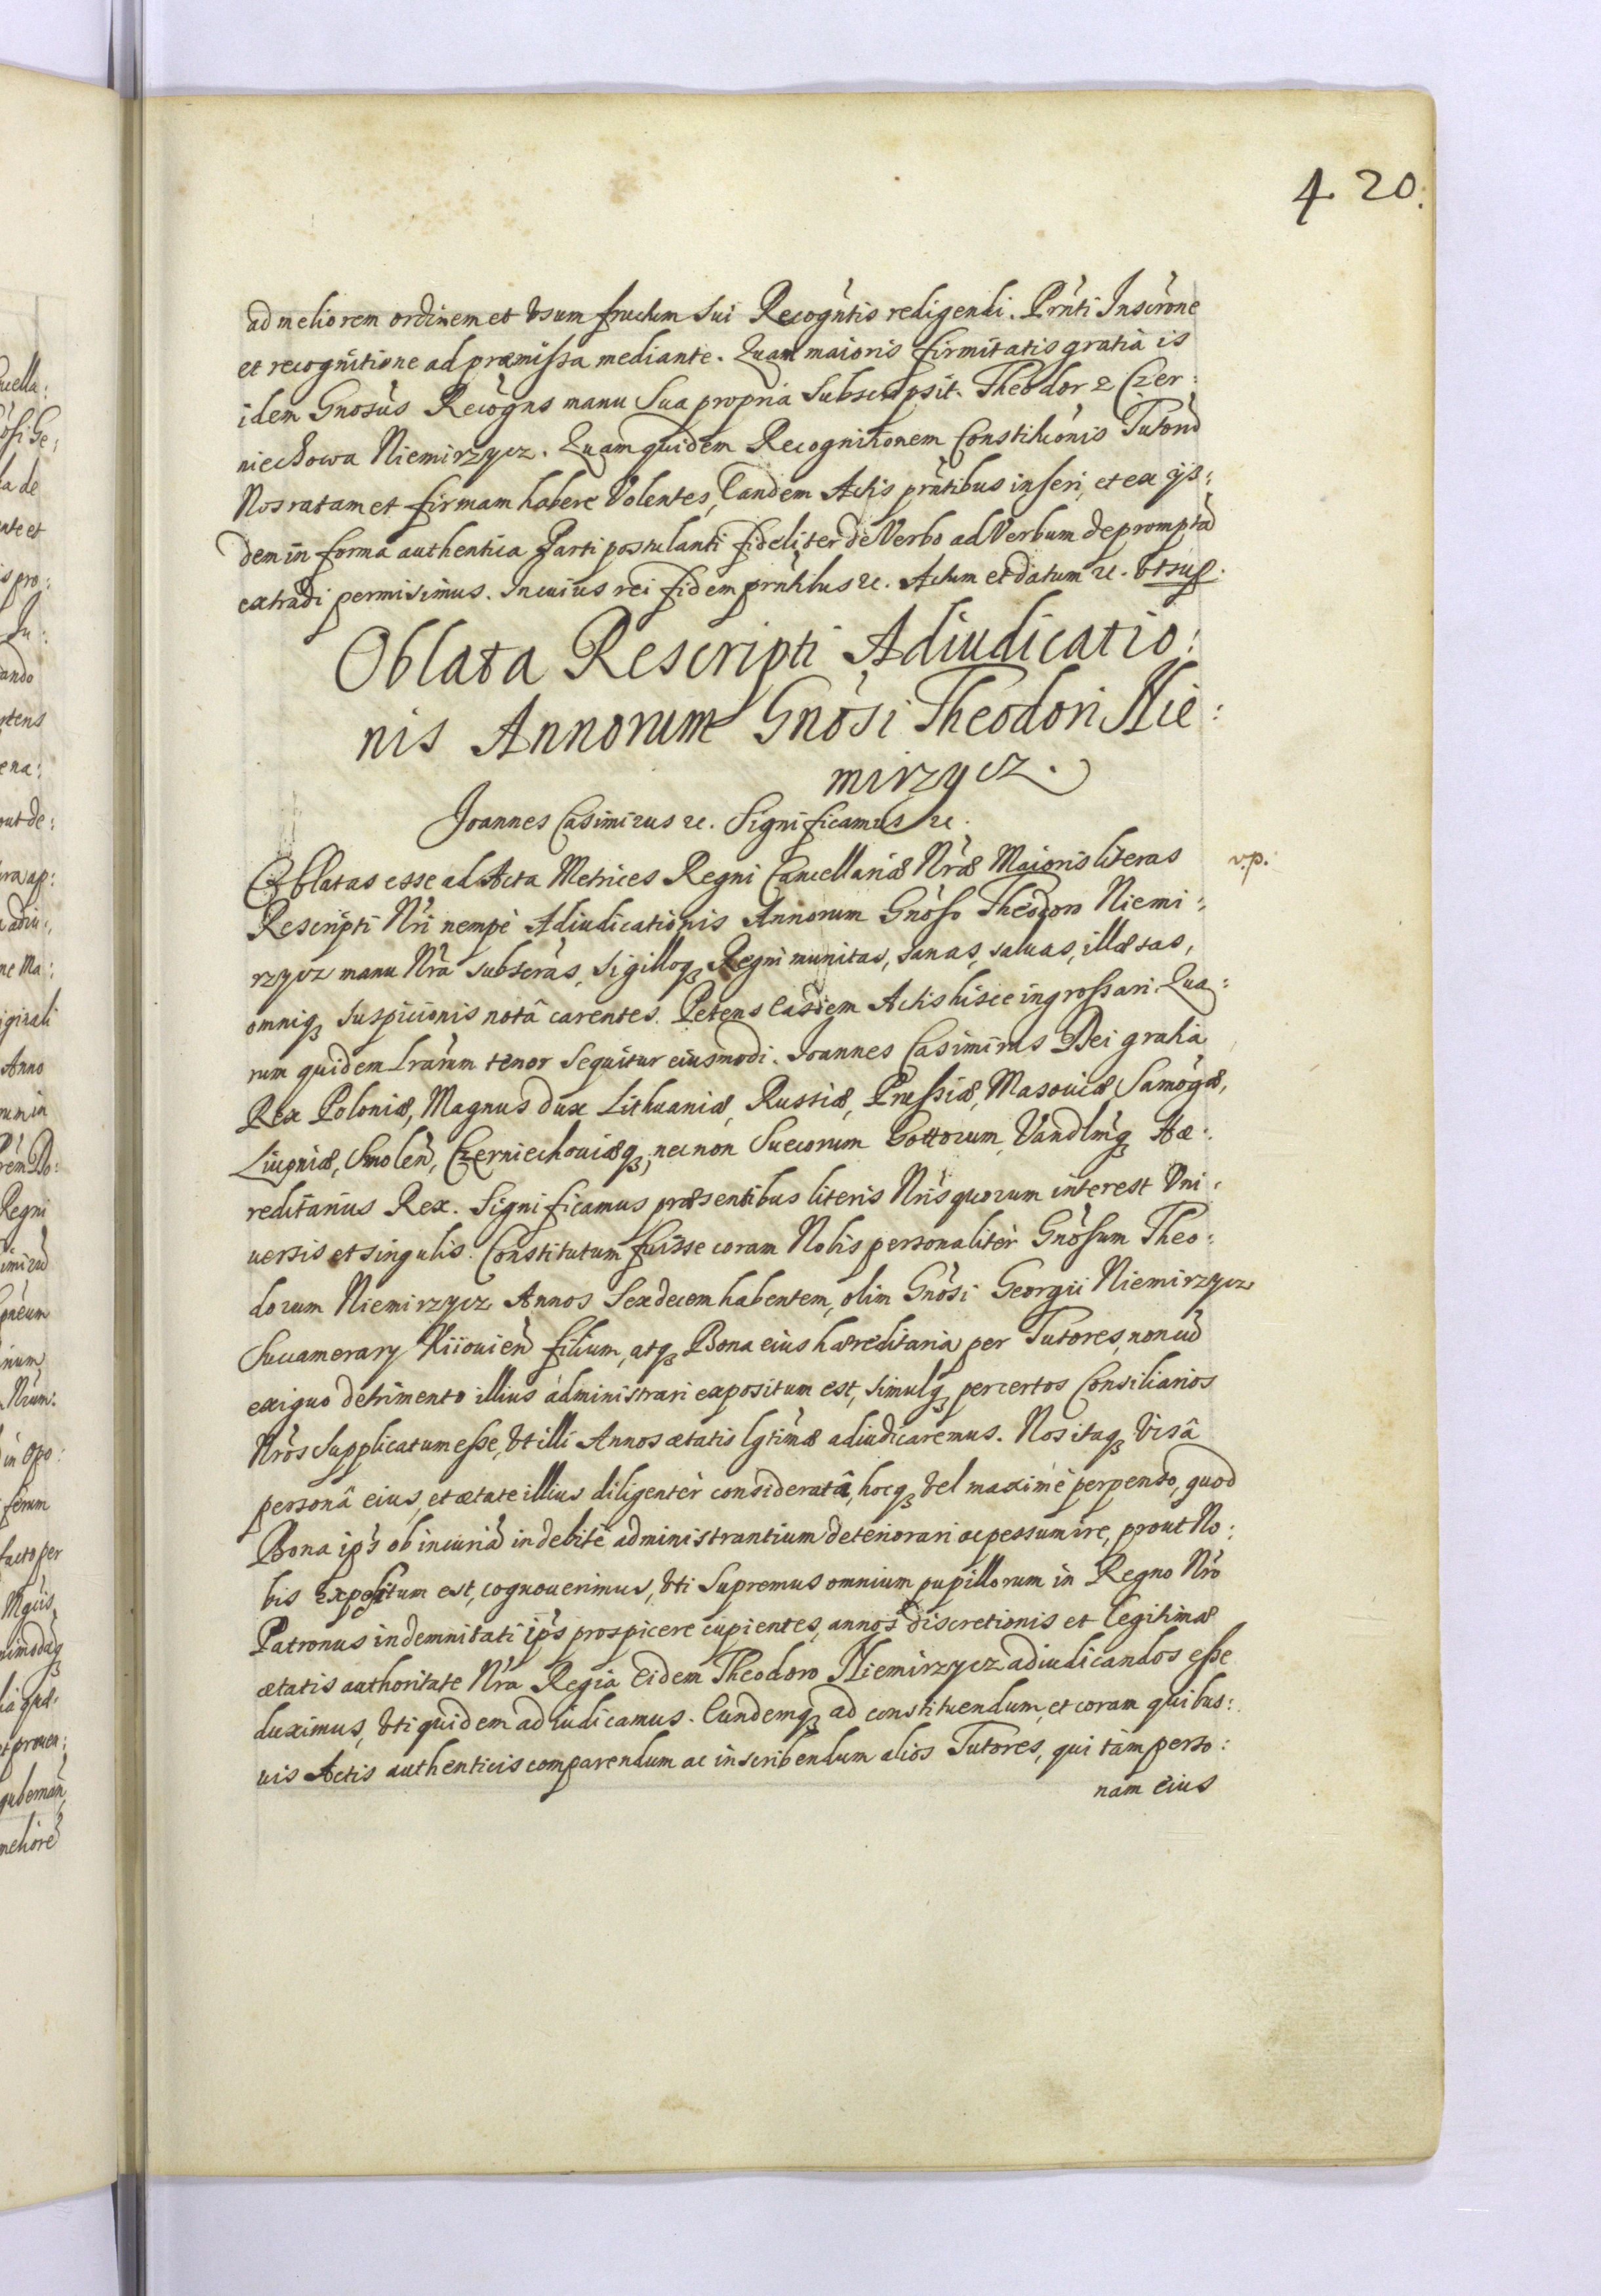 4 20.
ad meliorem ordinem et Vsum fructum sui Recogñtis redigendi. Prñti Inscr̃one
et recognitione ad præmissa mediante. Quam maioris firmitatis gratia is
idem Gnosũs Recõgns manu Sua propria Subscripsit. Theodor z Czer:
niechowa Niemirzycz. Quam quidem Recognitionem Constitucõnis Tutorũ
Nos ratam et firmam habere Volentes, Eandem Actis prñtibus inseri, et ex ijs:
dem in forma authentica Parti postulanti fideliter de Verbo ad Verbum depromptã
extradi permisimus. In cuius rei fidem prñtibus &c. Actum et datum &c. Vt sup.
Oblata Rescripti Adiudicatio:
nis Annorum Gnõsi Theodori Nie:
mirzycz.
Joannes Casimirus &c. Significamus &c.
Oblatas esse ad Acta Metrices Regni Cancellariæ Nr̃æ Maioris literas
v.p.
Rescripti Nr̃i nempè Adiudicationis Annorum Gnõso Theodoro Niemi:
rzycz manu Nr̃a subscr̃as, sigilloq; Regni munitas, sanas, saluas, illæsas,
omniq; suspicionis notâ carentes. Petens Easdem Actis hisce ingrossari. Qua:
rum quidem Lr̃arum tenor sequitur eiusmodi. Joannes Casimirus Dei gratia
Rex Poloniæ, Magnus dux Lithuaniæ, Russiæ, Prussiæ, Masouiæ, Samõgæ,
Liuoniæ, Smoleñ, Czerniechouiæq;, nec non Suecorum Gottorum, Vandlm̃q; Hæ:
reditarius Rex. Significamus præsentibus literis Nr̃is quorum interest Vni:
uersis et singulis. Constitutum fuisse coram Nobis personalitèr Gnõsum Theo:
dorum Niemirzycz Annos Sexdecem habentem, olim Gnõsi Georgii Niemirzycz
Succamerary Kiiouieñ filium, atq; Bona eius hæreditaria per Tutores, non cũ
exiguo detrimento illius administrari expositum est, simulq; per certos Consiliarios
Nr̃os Supplicatum esse, Vt illi Annos ætatis lgtimæ adiudicaremus. Nos itaq; Visâ
personâ eius, et ætate illius diligentèr consideratâ, hocq; Vel maximè perpenso, quod
Bona ip̃s ob incuriã indebitè administrantium deteriorari ac pessum ire, prout No:
bis Expositum est, cognouerimus, Vti Supremus omnium pupillorum in Regno Nr̃o
Patronus indemnitati ip̃s prospicere cupientes, annos discretionis et legitimæ
ætatis authoritate Nr̃a Regia Eidem Theodoro Niemirzycz adiudicandos esse
duximus, Vti quidem adiudicamus. Eundemq; ad constituendum, et coram quibus:
uis Actis authenticis comparendum ac inscribendum alios Tutores, qui tàm perso:
nam eius